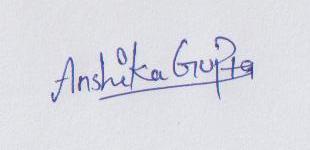 Anshika Gupta